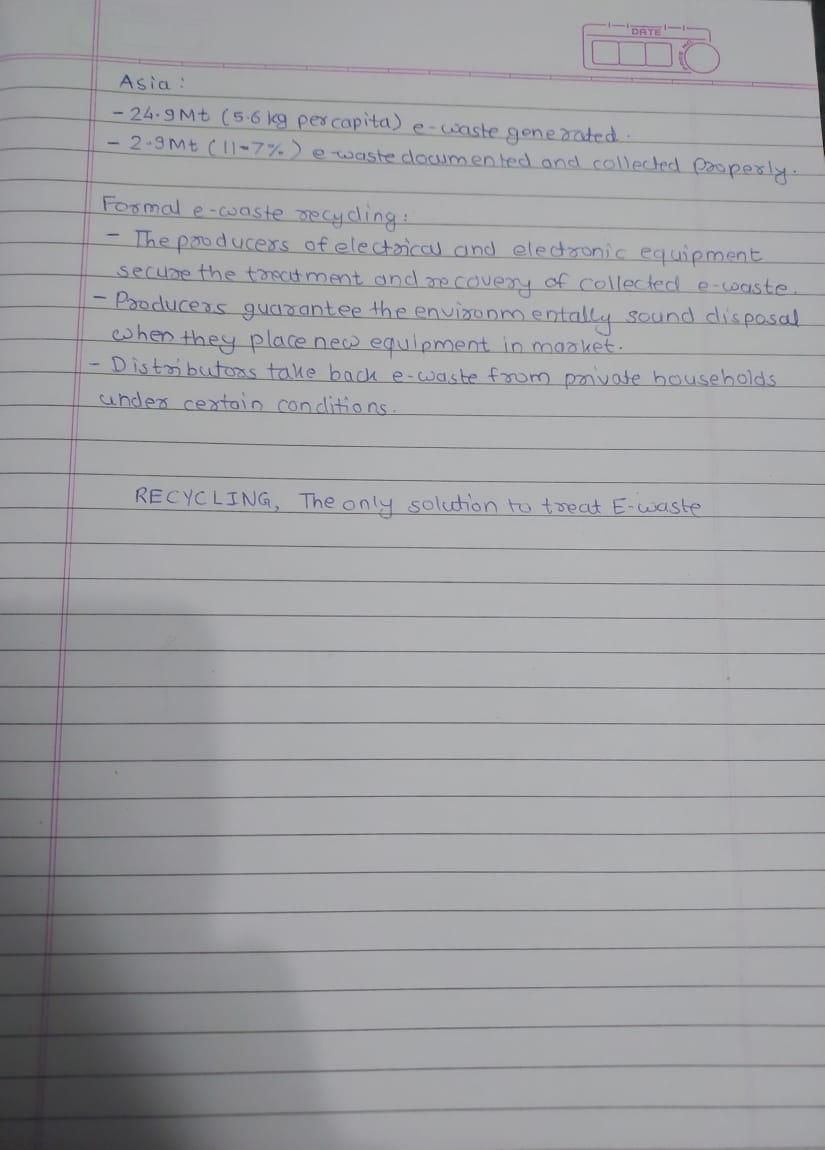 DATE
Asia :
- 24.9Mt (5.6 kg per capita) e-waste generated.
- 2.9Mt (11.7%) e-waste documented and collected properly.
Formal e-waste recycling:
- The producers of electrical and electronic equipment
secure the treatment and recovery of collected e-waste.
- Producers guarantee the environmentally sound disposal
when they place new equipment in market.
- Distributors take back e-waste from private households
under certain conditions.
RECYCLING, The only solution to treat E-waste